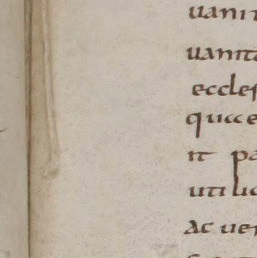 uani
uanita
eccles
quae
it pa
utilic
ac uer